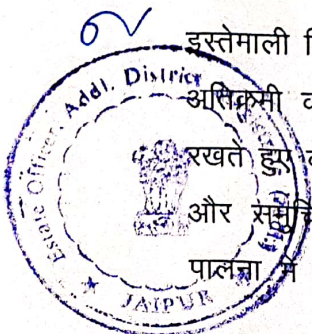 इस्तेमाली
अतिक्रमी
रखते हुए
और समुचि
पालना में
Estate Officer, Addl. District
JAIPUR